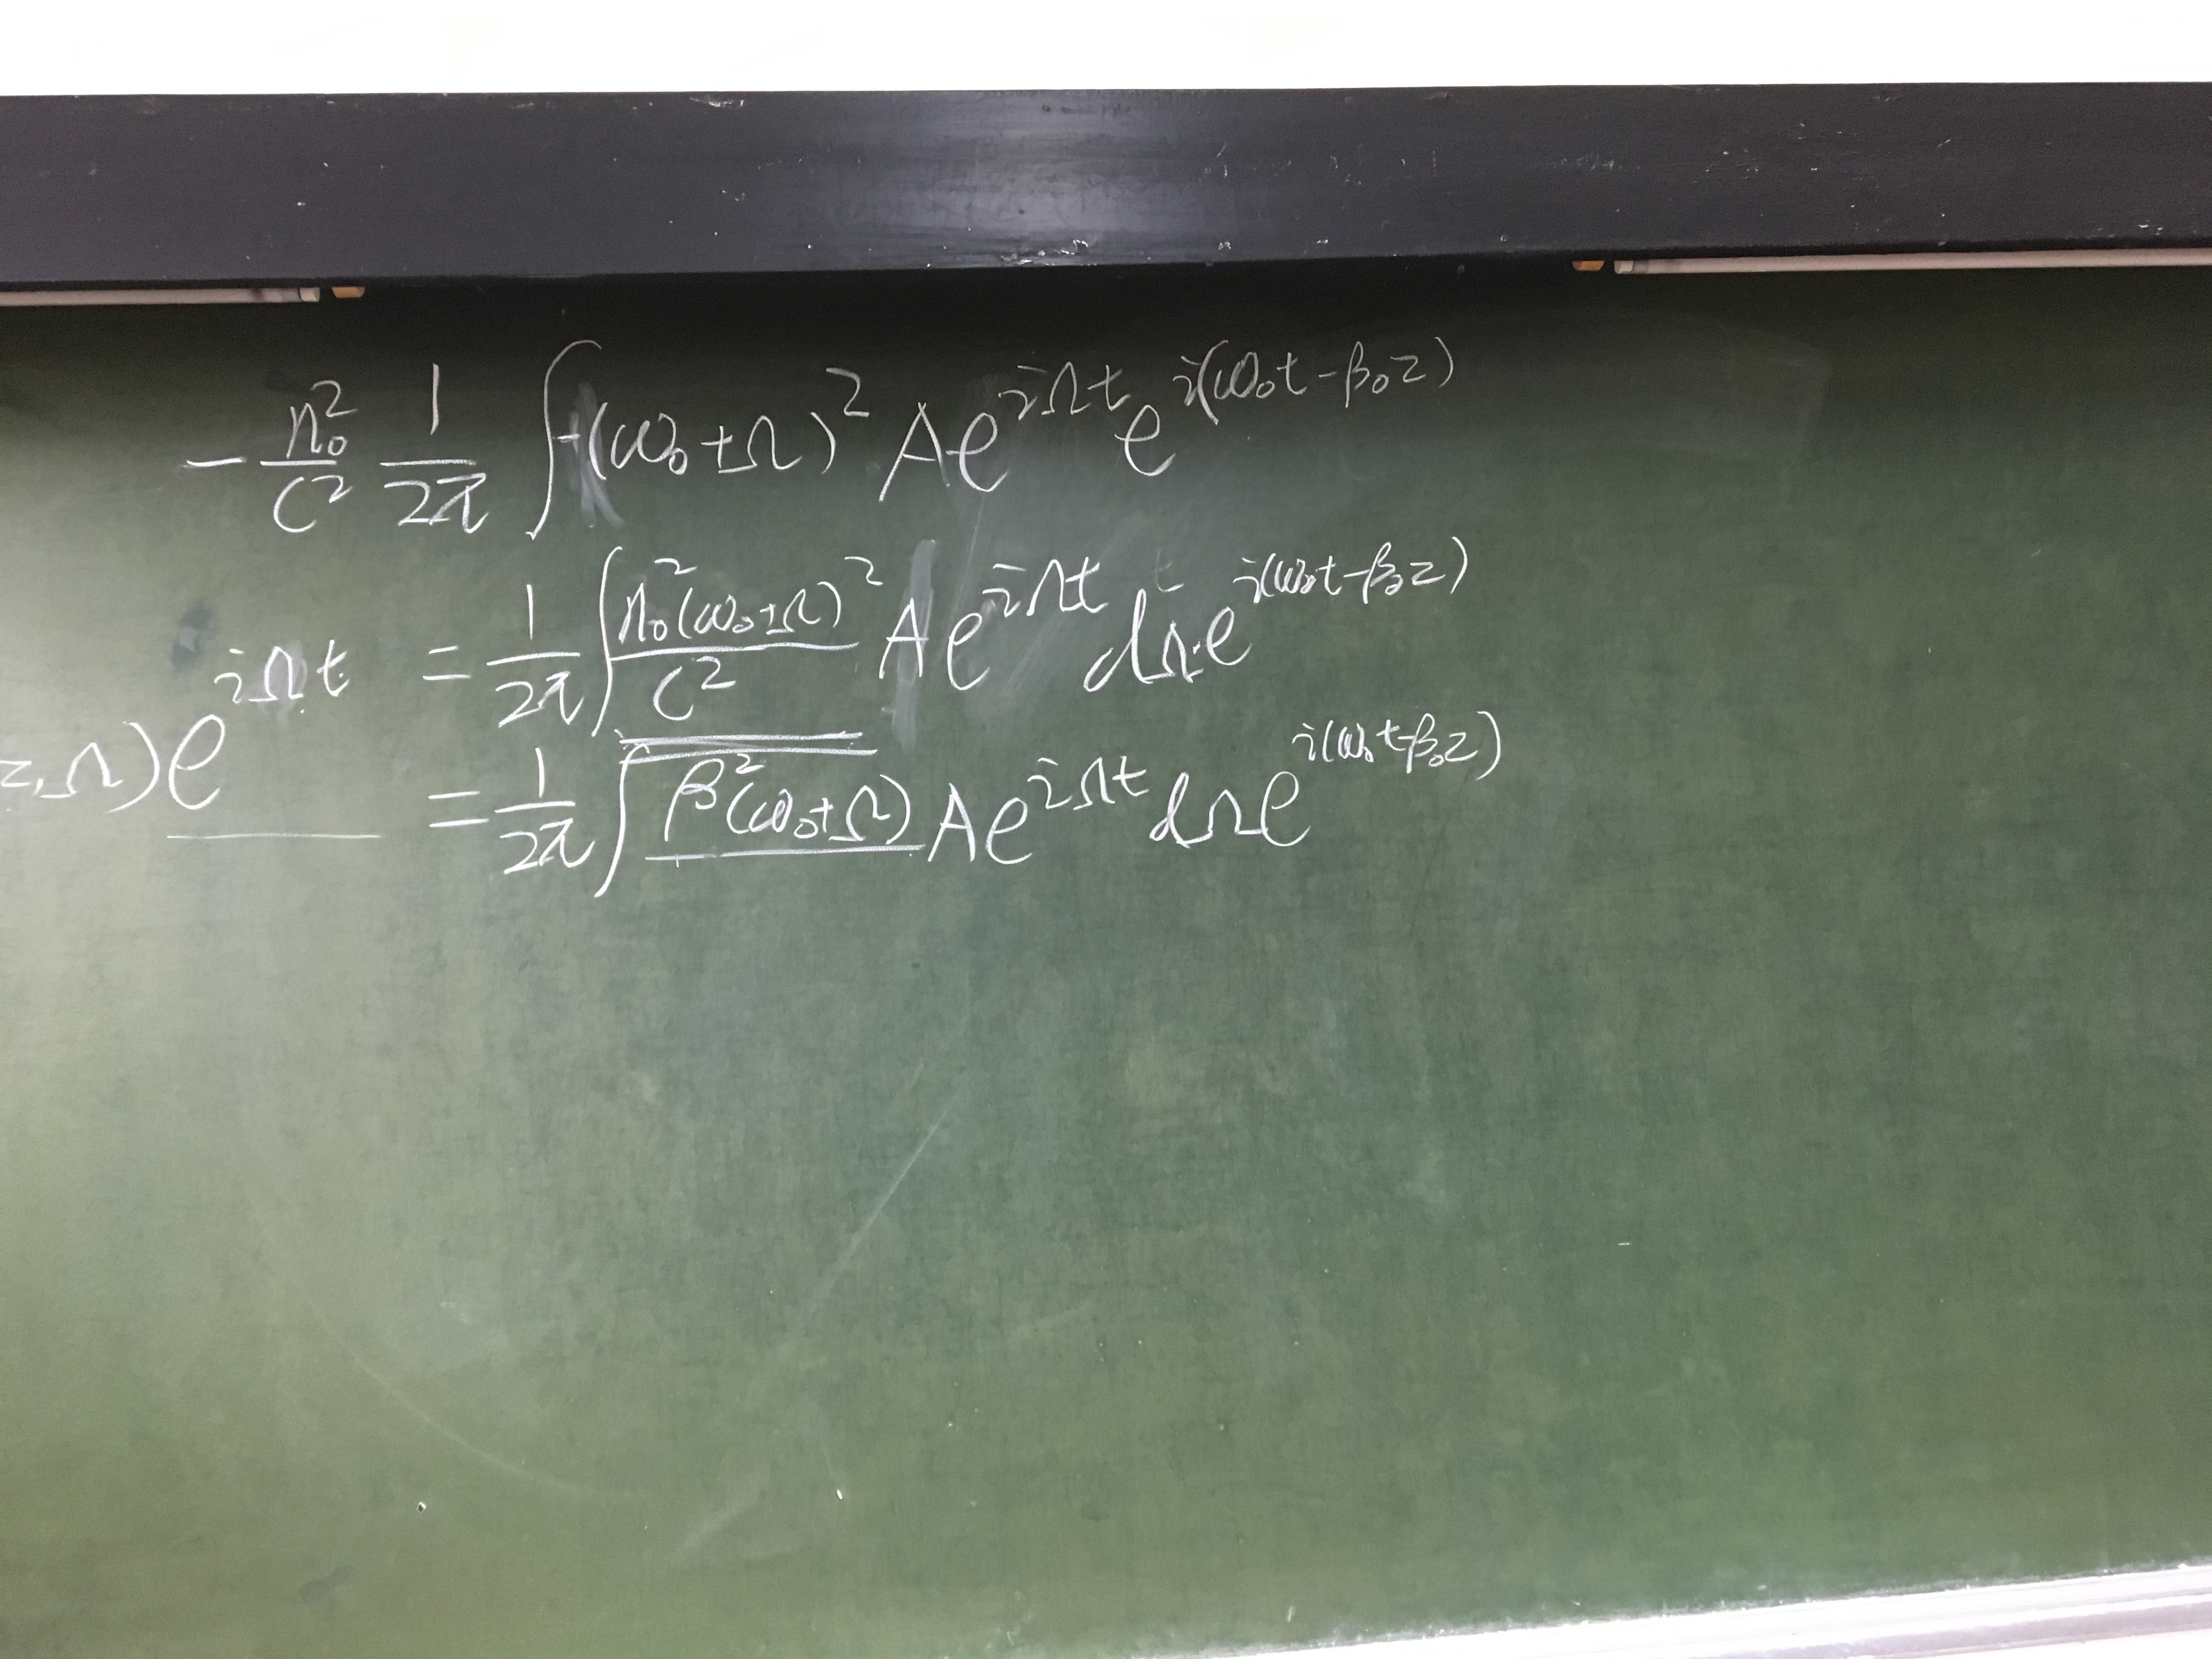 -\frac{n_0^2}{c^2} \frac{1}{2\pi} \int -(\omega_0+\Omega)^2 A e^{i\Omega t} e^{i(\omega_0 t-\beta_0 z)}
= \frac{1}{2\pi} \int \frac{n_0^2(\omega_0+\Omega)^2}{c^2} A e^{i\Omega t} d\Omega \cdot e^{i(\omega_0 t-\beta_0 z)}
z,\Omega) e^{i\Omega t}
= \frac{1}{2\pi} \int \beta^2(\omega_0+\Omega) A e^{i\Omega t} d\Omega e^{i(\omega_0 t-\beta_0 z)}